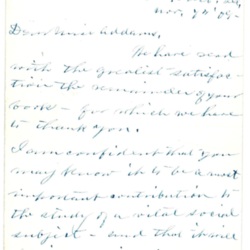 Nov. 9th 09-
Dear Miss Addams,
We have read
with the greatest satisfac-
tion the remainder of your
book - for which we have
to thank you.
I am confident that you
may know it to be a most
important contribution to
the study of a vital social
subject - and that it will